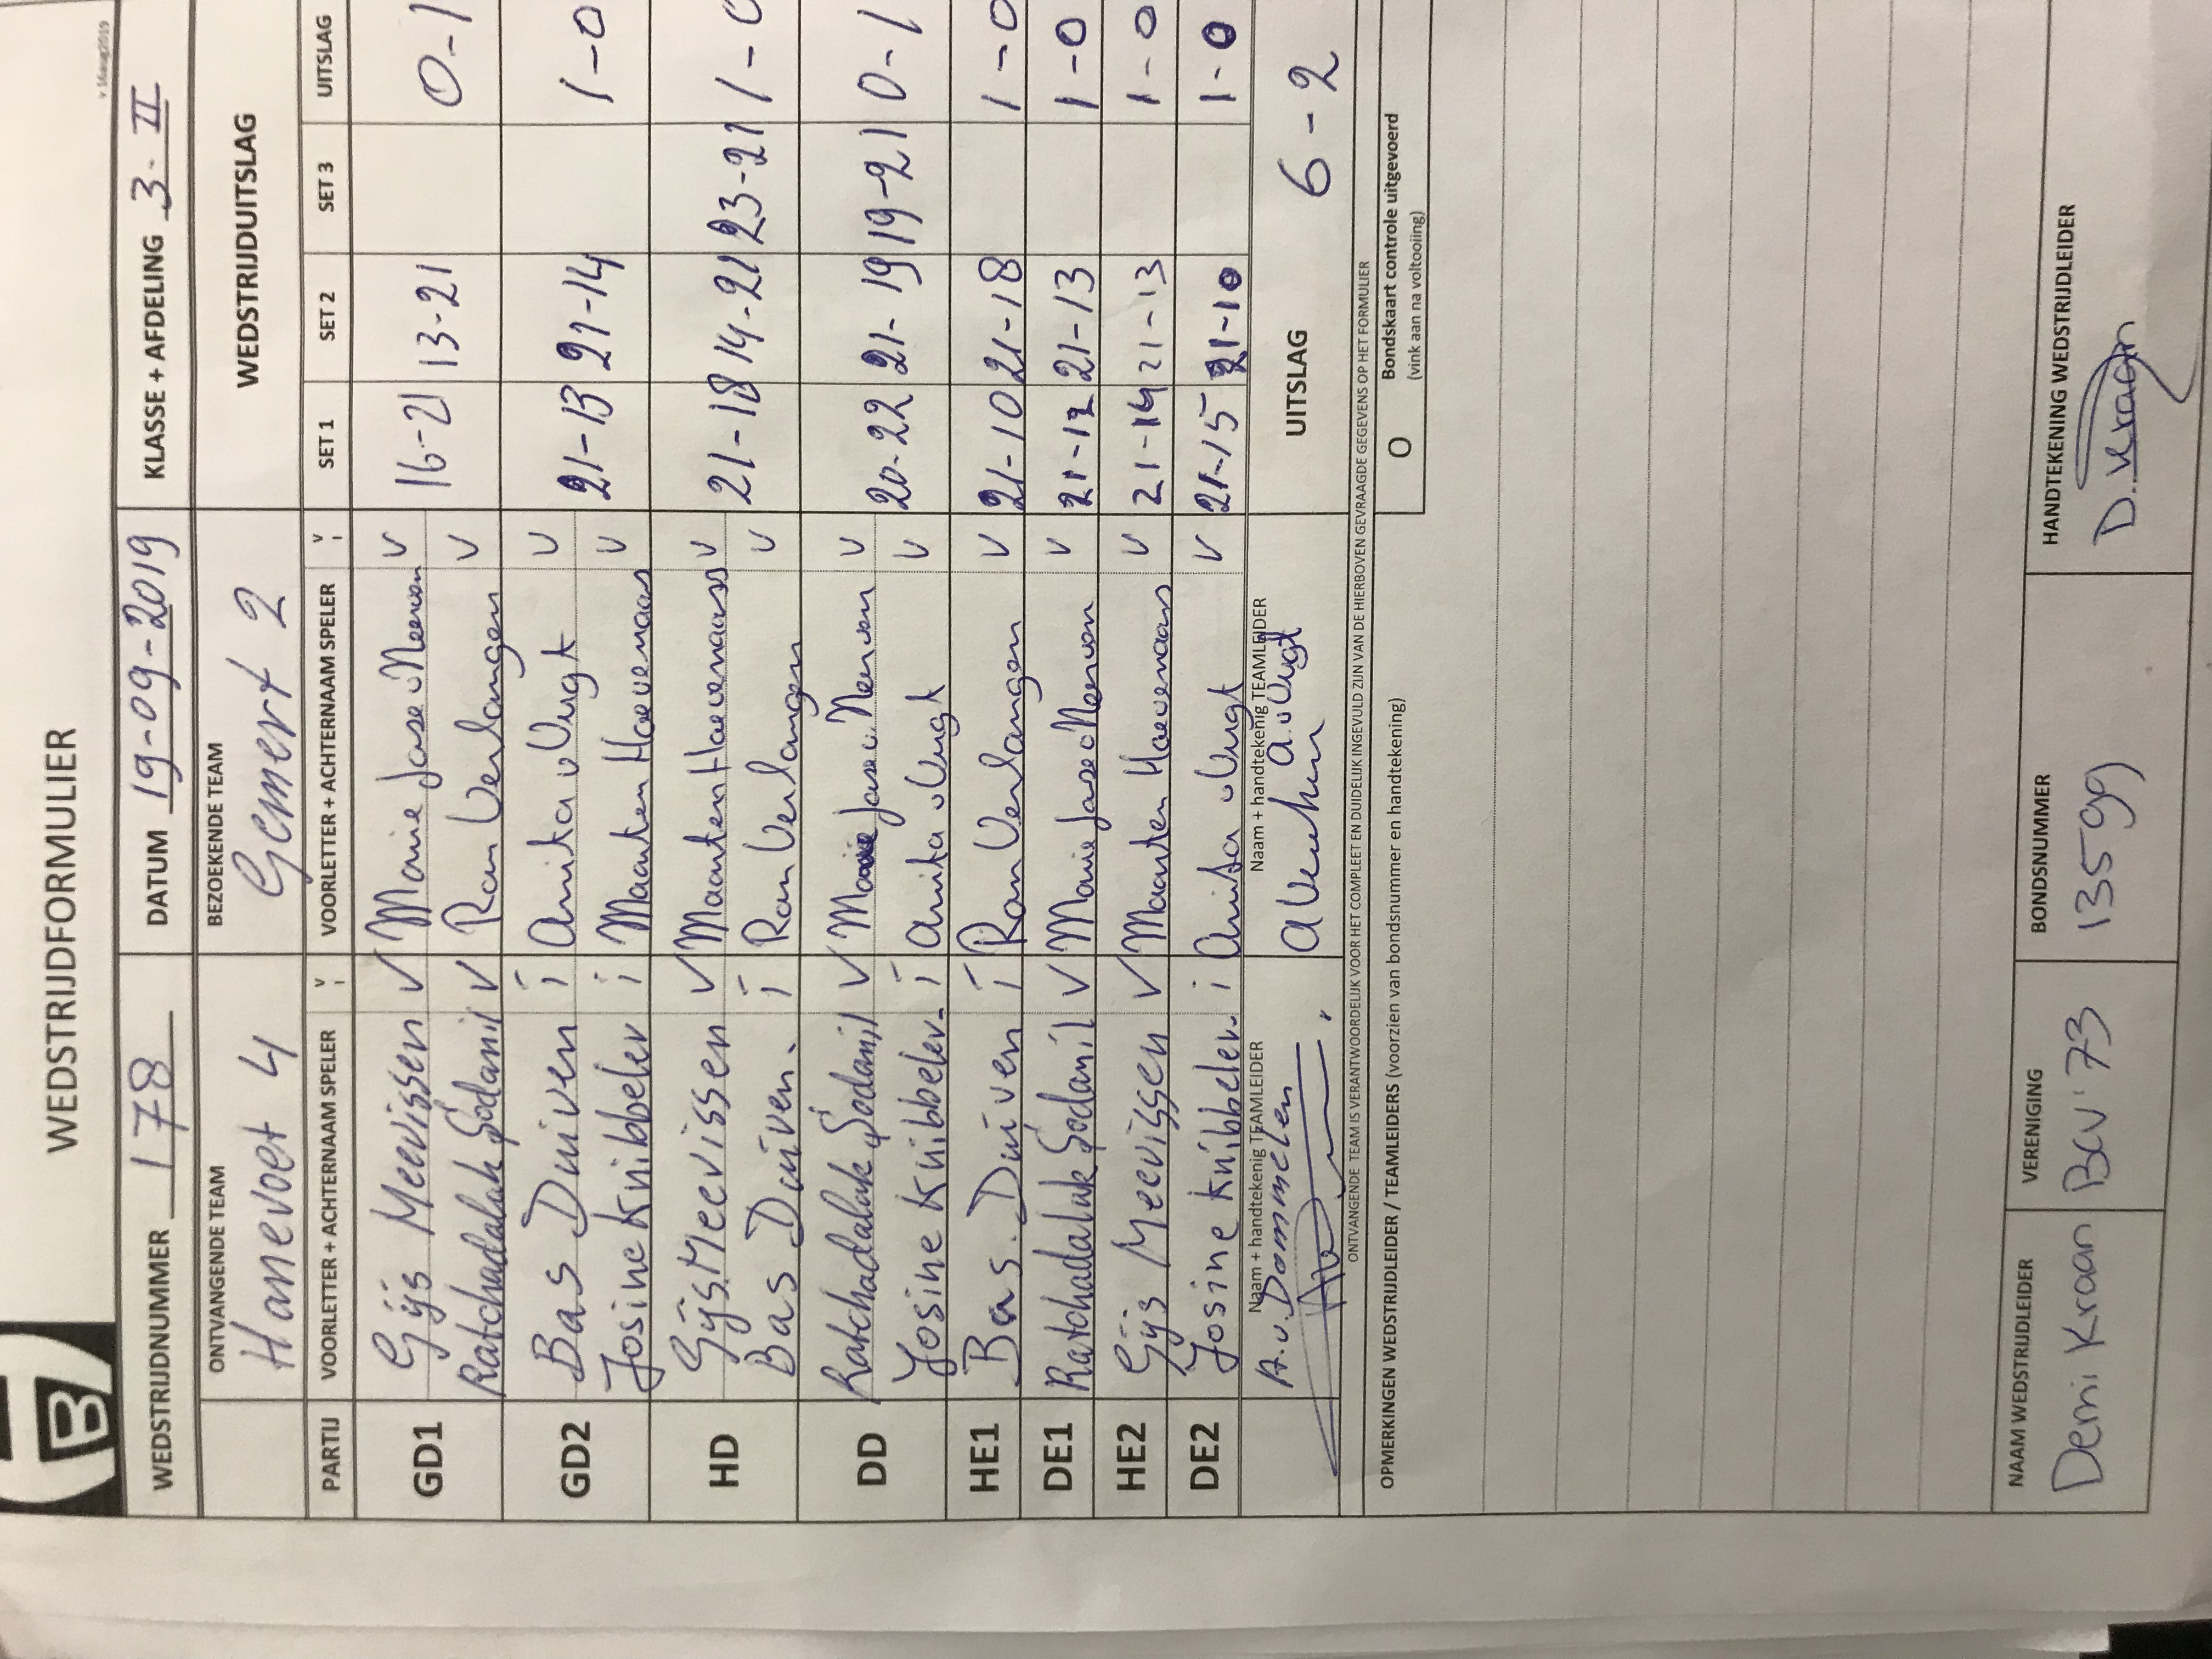 WEDSTRIJDFORMULIER
v.16aug2019
WEDSTRIJDNUMMER 178 DATUM 19-09-2019 KLASSE + AFDELING 3-II
ONTVANGENDE TEAM BEZOEKENDE TEAM WEDSTRIJDUITSLAG
Hanevoet 4 Gemert 2
PARTIJ VOORLETTER + ACHTERNAAM SPELER V I VOORLETTER + ACHTERNAAM SPELER V I SET 1 SET 2 SET 3 UITSLAG
GD1 Gijs Meevissen V Marie Jose v Neerven V 16-21 13-21 0-1
Ratchadaluk Sodanil V Ron Verlangen V
GD2 Bas Duiven i Anita v Vugt V 21-13 21-14 1-0
Josine Knibbeler i Maarten Hoevenaars V
HD Gijs Meevissen V Maarten Hoevenaars V 21-18 14-21 23-21 1-0
Bas Duiven. i Ron Verlangen V
DD Ratchadaluk Sodanil V Marie Jose v. Neerven V 20-22 21-19 19-21 0-1
Josine Knibbeler. i Anita v Vugt V
HE1 Bas. Duiven i Ron Verlangen V 21-10 21-18 1-0
DE1 Ratchadaluk Sodanil V Marie Jose v Neerven V 21-12 21-13 1-0
HE2 Gijs Meevissen V Maarten Hoevenaars V 21-14 21-13 1-0
DE2 Josine Knibbeler. i Anita v Vugt V 21-15 21-10 1-0
Naam + handtekenig TEAMLEIDER Naam + handtekenig TEAMLEIDER UITSLAG 6-2
A.v. Dommelen A. v Vugt
ONTVANGENDE TEAM IS VERANTWOORDELIJK VOOR HET COMPLEET EN DUIDELIJK INGEVULD ZIJN VAN DE HIERBOVEN GEVRAAGDE GEGEVENS OP HET FORMULIER
OPMERKINGEN WEDSTRIJDLEIDER / TEAMLEIDERS (voorzien van bondsnummer en handtekening) O Bondskaart controle uitgevoerd
(vink aan na voltooiing)
NAAM WEDSTRIJDLEIDER VERENIGING BONDSNUMMER HANDTEKENING WEDSTRIJDLEIDER
Demi Kraan BCV '73 13599 D. Kraan